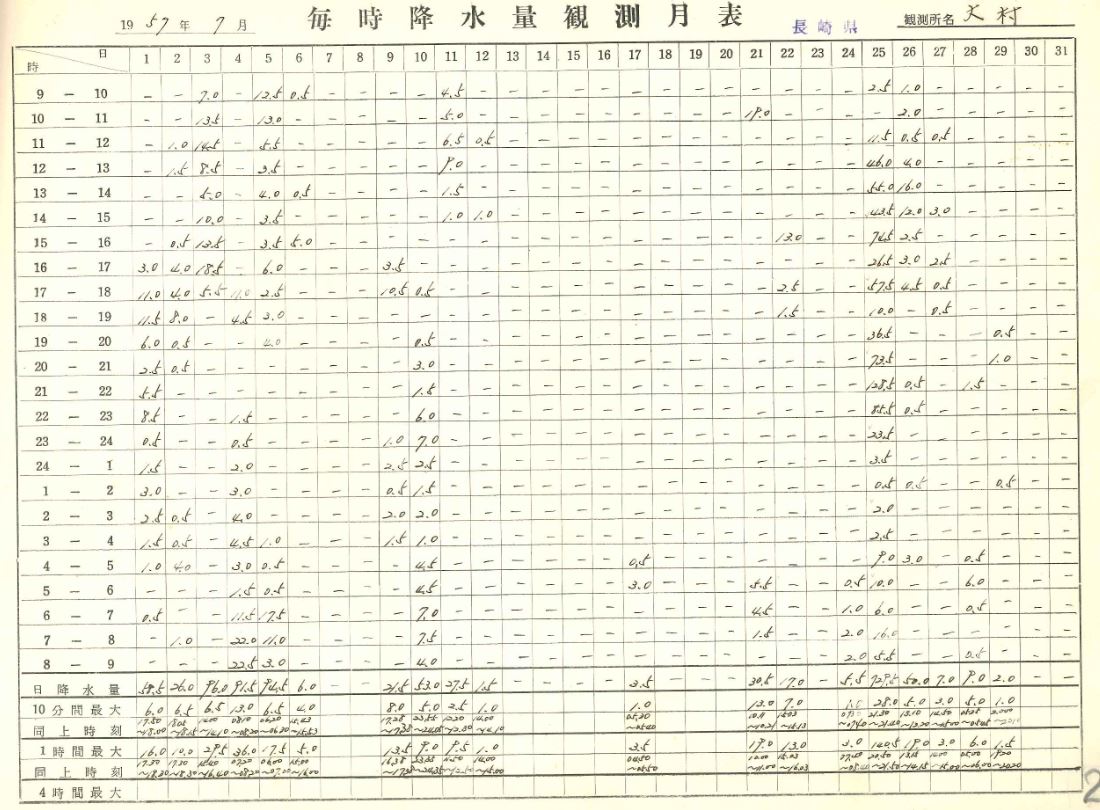 1957年 7月 毎時降水量観測月表 長崎県 観測所名 大村
時 日 1 2 3 4 5 6 7 8 9 10 11 12 13 14 15 16 17 18 19 20 21 22 23 24 25 26 27 28 29 30 31
9 - 10 - - 7.0 - 12.5 0.5 - - - - 4.5 - - - - - - - - - - - - - 2.5 1.0 - - - - -
10 - 11 - - 13.5 - 13.0 - - - - - 5.0 - - - - - - - - - 19.0 - - 2.0 - - - -
11 - 12 - 1.0 14.5 - 5.5 - - - - - 6.5 0.5 - - - - - - - - - - - - 11.5 0.5 0.5 - - - -
12 - 13 - 1.5 8.5 - 3.5 - - - - - 9.0 - - - - - - - - - - - - - 46.0 4.0 - - - - -
13 - 14 - - 5.0 - 4.0 0.5 - - - - 1.5 - - - - - - - - - - - - - 55.0 16.0 - - - - -
14 - 15 - - 10.0 - 3.5 - - - - - 1.0 1.0 - - - - - - - - - - - - 43.5 12.0 3.0 - - - -
15 - 16 - 0.5 13.5 - 3.5 5.0 - - - - - - - - - - - - - - - 13.0 - - 74.5 2.5 - - - - -
16 - 17 3.0 4.0 18.5 - 6.0 - - - 3.5 - - - - - - - - - - - - - - - 26.5 3.0 2.5 - - - -
17 - 18 11.0 4.0 5.5 11.0 2.5 - - - 10.5 0.5 - - - - - - - - - - - 2.5 - - 57.5 4.5 0.5 - - - -
18 - 19 11.5 8.0 - 4.5 3.0 - - - - - - - - - - - - - - - - 1.5 - - 10.0 - 0.5 - - - -
19 - 20 6.0 0.5 - - 4.0 - - - - 0.5 - - - - - - - - - - - - - - 36.5 - - - 0.5 - -
20 - 21 2.5 0.5 - - - - - - - 3.0 - - - - - - - - - - - - - - 73.5 - - - 1.0 - -
21 - 22 5.5 - - - - - - - - 1.5 - - - - - - - - - - - - - - 128.5 0.5 - 1.5 - - -
22 - 23 8.5 - - 1.5 - - - - - 6.0 - - - - - - - - - - - - - - 85.5 0.5 - - - - -
23 - 24 0.5 - - 0.5 - - - - 1.0 7.0 - - - - - - - - - - - - - - 23.5 - - - - - -
24 - 1 1.5 - - 2.0 - - - - 2.5 2.5 - - - - - - - - - - - - - - 3.5 - - - - - -
1 - 2 3.0 - - 3.0 - - - - 0.5 1.5 - - - - - - - - - - - - - - 0.5 0.5 - - 0.5 - -
2 - 3 2.5 0.5 - 4.0 - - - - 2.0 2.0 - - - - - - - - - - - - - - 2.0 - - - - - -
3 - 4 1.5 0.5 - 4.5 1.0 - - - 1.5 1.0 - - - - - - - - - - - - - - 2.5 - - - - - -
4 - 5 1.0 4.0 - 3.0 0.5 - - - - 4.5 - - - - - - 0.5 - - - - - - - 9.0 3.0 - 0.5 - - -
5 - 6 - - - 1.5 0.5 - - - - 4.5 - - - - - - 3.0 - - - 5.5 - - 0.5 10.0 - - 6.0 - - -
6 - 7 0.5 - - 11.5 17.5 - - - - 7.0 - - - - - - - - - - 4.5 - - 1.0 6.0 - - 0.5 - - -
7 - 8 - 1.0 - 22.0 11.0 - - - - 7.5 - - - - - - - - - - 1.5 - - 2.0 16.0 - - - - - -
8 - 9 - - - 22.5 3.0 - - - - 4.0 - - - - - - - - - - - - - 2.0 5.5 - - 0.5 - - -
日降水量 58.5 26.0 96.0 91.5 94.5 6.0 - - 21.5 53.0 27.5 1.5 - - - - 3.5 - - - 30.5 17.0 - 5.5 729.5 50.0 7.0 9.0 2.0 - -
10分間最大 6.0 6.5 6.5 13.0 6.5 4.0 8.0 5.0 2.5 1.0 1.0 13.0 7.0 28.0 5.0 3.0 5.0 1.0
同上時刻
1時間最大 16.0 10.0 29.5 36.0 17.5 5.0 13.5 9.0 9.5 1.0 3.5 19.0 13.0 3.0 140.5 19.0 3.0 6.0 1.5
同上時刻
4時間最大
2